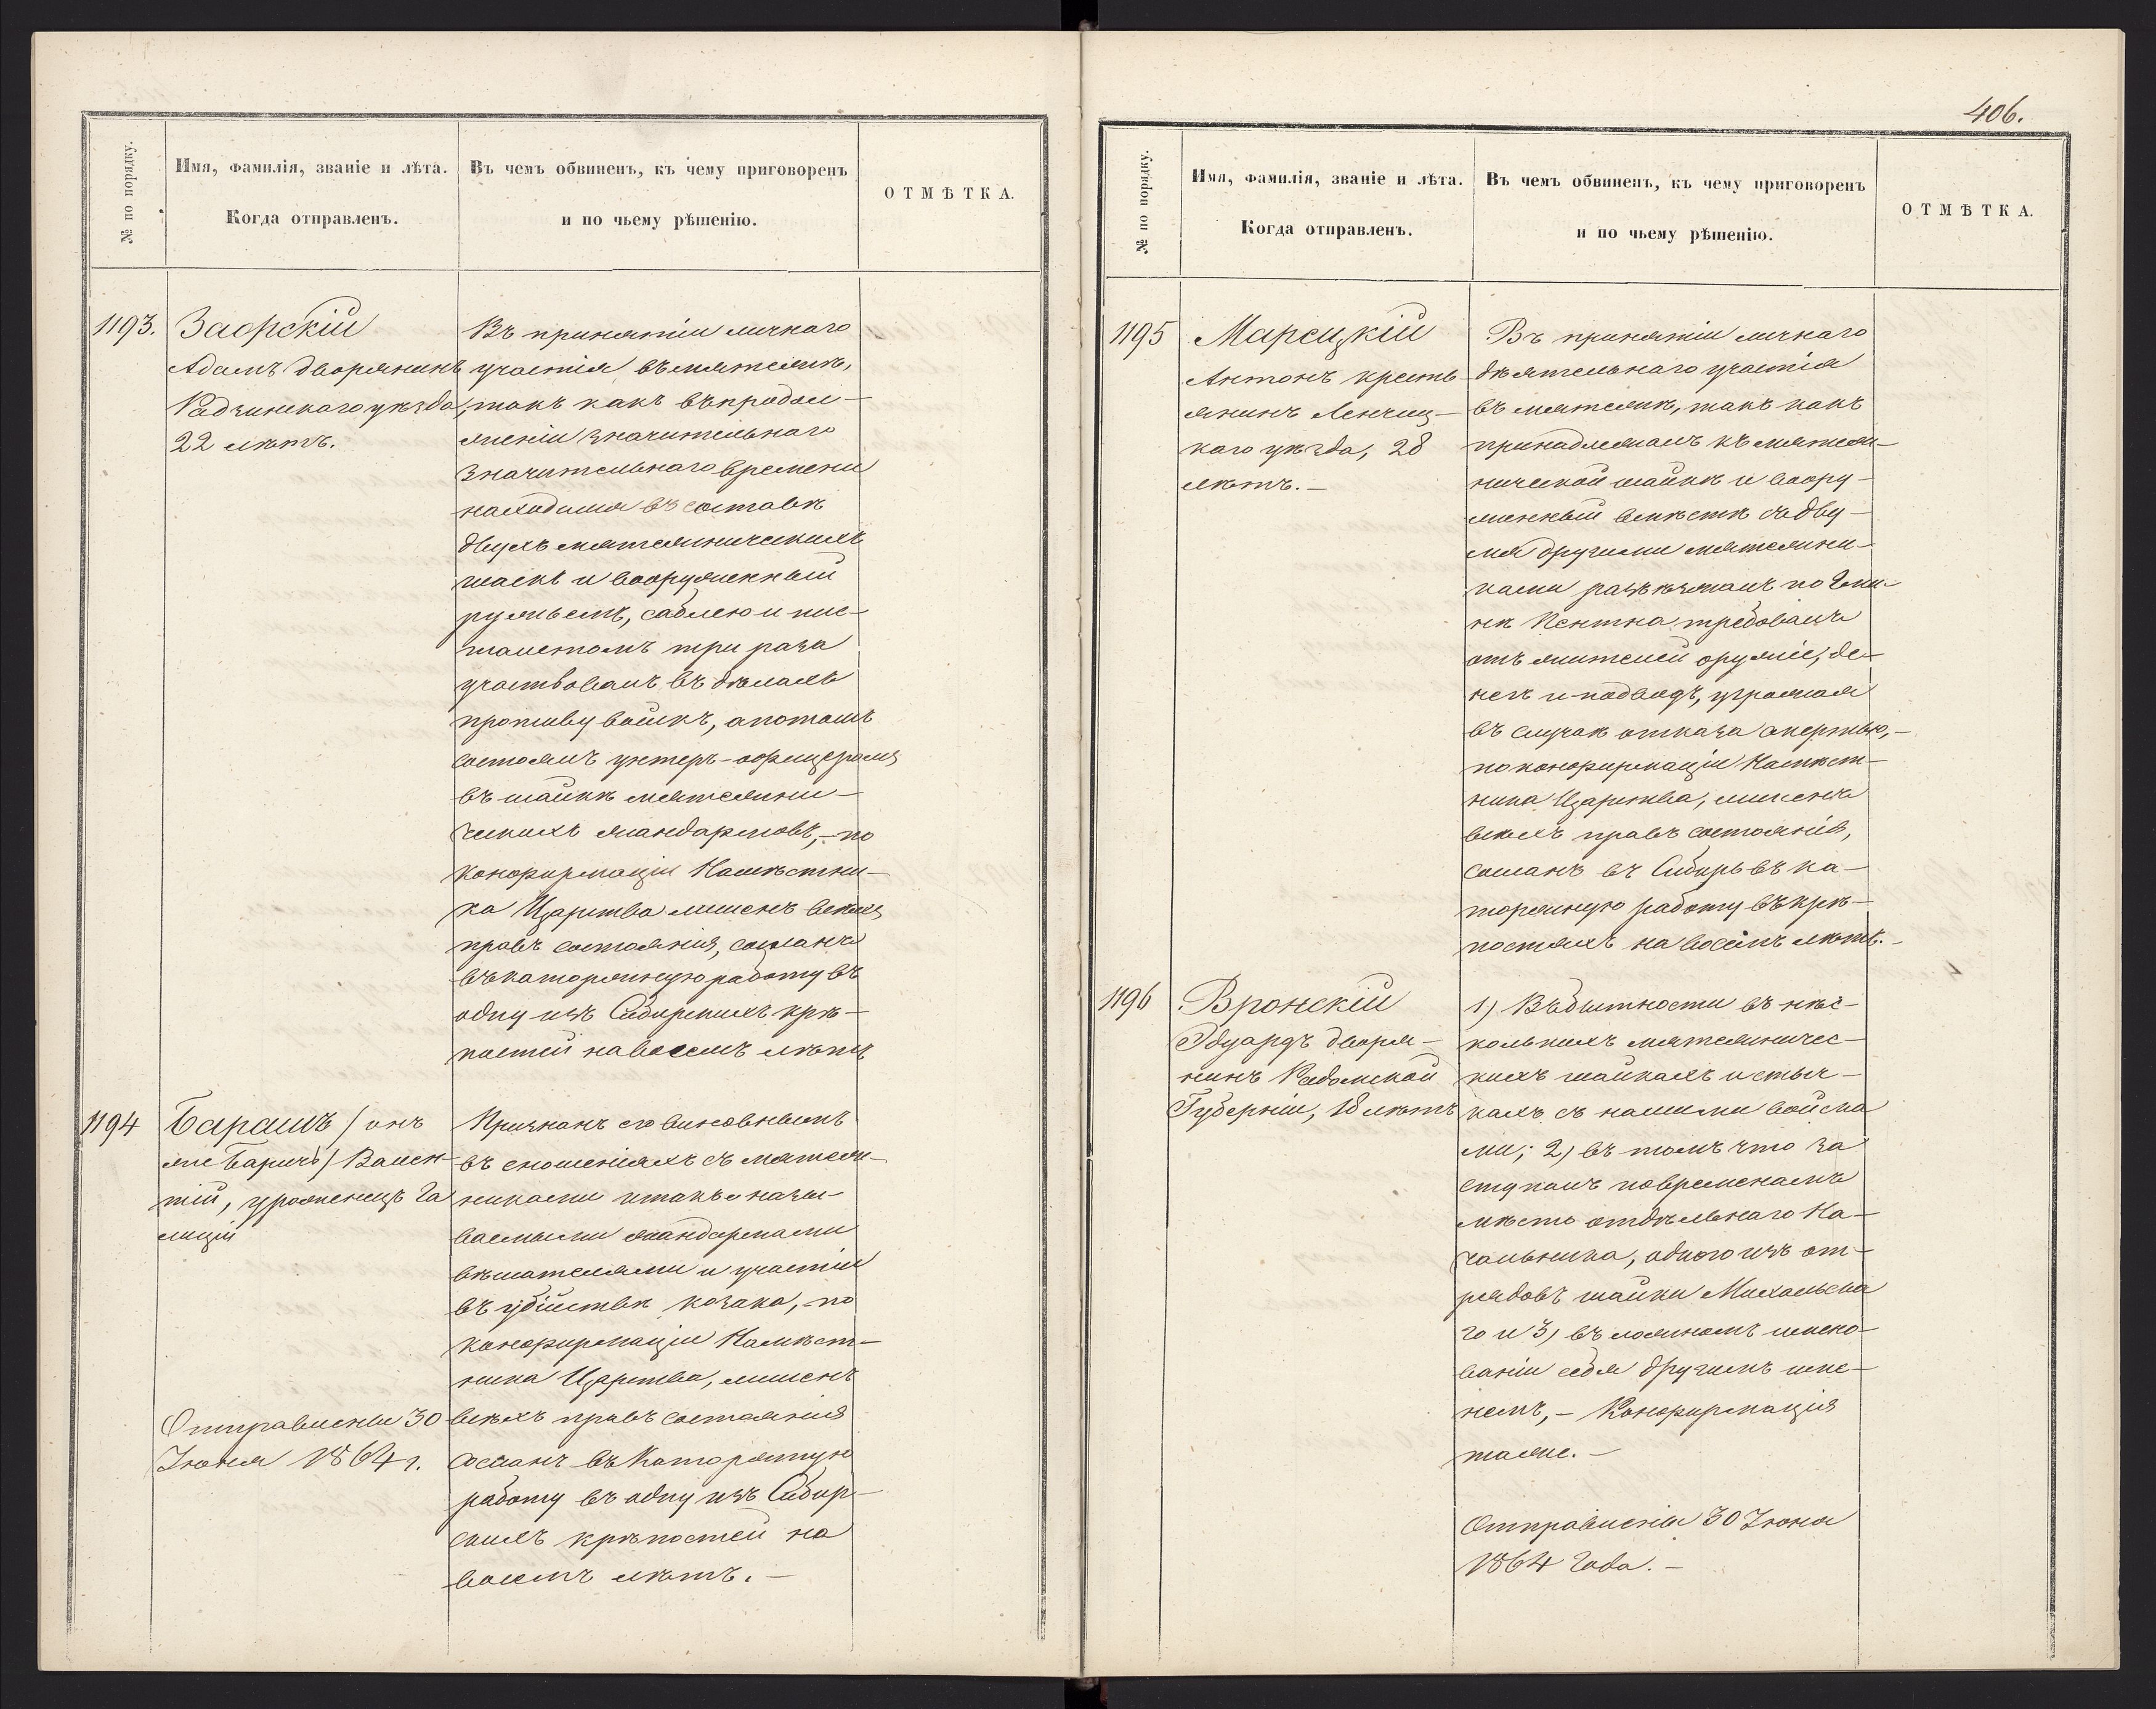 № по порядку.
Имя, фамилія, званіе и лѣта.
Когда отправленъ.
Въ чемъ обвиненъ, къ чему приговоренъ
и по чьему рѣшенію.
ОТМѢТКА.
1193.
Заорскій
Адамъ дворянинъ
Радзинскаго уѣзда,
22 лѣтъ.
Въ принятіи личнаго
участія въ мятежѣ,
такъ какъ въ продол-
женіи значительнаго
значительнаго времени
находился въ составѣ
двухъ мятежническихъ
шаекъ и вооруженный
ружьемъ, саблею и пис-
толетомъ три раза
участвовалъ въ дѣлахъ
противу войскъ, а потомъ
состоялъ унтеръ-офицеромъ
въ шайкѣ мятежни-
ческихъ жандармовъ, - по
конфирмаціи Намѣстни-
ка Царства лишенъ всѣхъ
правъ состоянія, сосланъ
въ каторжную работу въ
одну изъ Сибирскихъ крѣ-
постей на восемъ лѣтъ
1194
Барашъ / онъ
же Баричъ / Вален-
тій, уроженецъ Га
лиціи
Отправлены 30
Іюня 1864 г.
Признанъ его виновнымъ
въ сношеніяхъ съ мятеж-
никами и такъ назы-
ваемыми жандармами
вѣшателями и участіи
въ убійствѣ козака, по
конфирмаціи Намѣст-
ника Царства, лишенъ
всѣхъ правъ состоянія
сосланъ въ Каторжную
работу въ одну изъ Сибир-
скихъ крѣпостей на
восемъ лѣтъ. -
406.
№ по порядку.
Имя, фамилія, званіе и лѣта.
Когда отправленъ.
Въ чемъ обвиненъ, къ чему приговоренъ
и по чьему рѣшенію.
ОТМѢТКА.
1195
Марсицкій
Антонъ кресть-
янинъ Ленчиц-
каго уѣзда, 28
лѣтъ. -
Въ принятіи личнаго
дѣятельнаго участія
въ мятежѣ, такъ какъ
принадлежалъ къ мятеж-
нической шайкѣ и воору-
женный вмѣстѣ съ дву-
мя другими мятежни-
ками разъѣзжалъ по Гми-
нѣ Пентка требовалъ
отъ жителей оружіе, де-
негъ и подводъ, угрожая
въ случаѣ отказа смертью, -
по конфирмаціи Намѣст-
ника Царства, лишенъ
всѣхъ правъ состоянія,
сосланъ въ Сибирь въ ка-
торжную работу въ крѣ-
постяхъ на восемь лѣтъ. -
1196
Вронскій
Эдуардъ дворя-
нинъ Радомской
Губерніи, 18 лѣтъ
1) Въ бытности въ нѣс-
колькихъ мятежничес-
кихъ шайкахъ и стыч-
кахъ съ нашими войска
ми; 2) въ томъ что за
ступалъ повременамъ
мѣсто отдѣльнаго На-
чальника, одного изъ от-
рядовъ шайки Михальска
го и 3) въ ложномъ имено-
ваніи себя другимъ име-
немъ, - Конфирмація
таже. -
Отправлены 30 Іюня
1864 Года. -